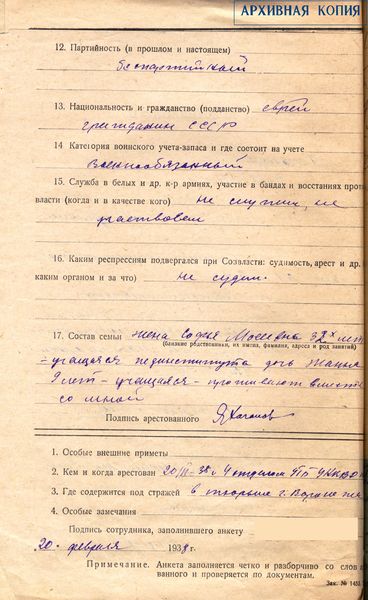 АРХИВНАЯ КОПИЯ
12. Партийность (в прошлом и настоящем)
беспартийный
13. Национальность и гражданство (подданство) еврей
гражданин СССР
14 Категория воинского учета-запаса и где состоит на учете
Военнообязанный
15. Служба в белых и др. к-р армиях, участие в бандах и восстаниях прот
власти (когда и в качестве кого) не служил, не
участвовал
16. Каким репрессиям подвергался при Соввласти: судимость, арест и др.
каким органом и за что) не судим.
17. Состав семьи жена Софья Моисеевна 32х лет
(близкие родственники, их имена, фамилии, адреса и род занятий)
- учащаяся пединститута дочь Жанна
9 лет - учащаяся - проживают вместе
со мной
Подпись арестованного
1. Особые внешние приметы
2. Кем и когда арестован 20/II-38 г. 4 отделом УНКВД
3. Где содержится под стражей в тюрьме г. Воронежа
4. Особые замечания
Подпись сотрудника, заполнившего анкету
20. февраля 1938 г.
Примечание. Анкета заполняется четко и разборчиво со слов а
ванного и проверяется по документам.
Зак. № 1453